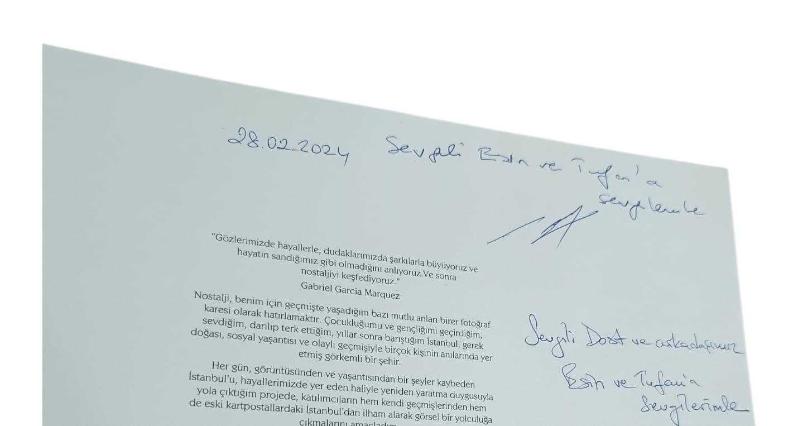 28.02.2024 Sevgili Esin ve Tufan'a
sevgilerimle
"Gözlerimizde hayallerle, dudaklarımızda şarkılarla büyüyoruz ve
hayatın sandığımız gibi olmadığını anlıyoruz.Ve sonra
nostaljiyi keşfediyoruz."
Gabriel Garcia Marquez
Nostalji, benim için geçmişte yaşadığım bazı mutlu anları birer fotoğraf
karesi olarak hatırlamaktır. Çocukluğumu ve gençliğimi geçirdiğim,
sevdiğim, darılıp terk ettiğim, yıllar sonra barıştığım İstanbul, gerek
doğası, sosyal yaşantısı ve olaylı geçmişiyle birçok kişinin anılarında yer
etmiş görkemli bir şehir.
Her gün, görüntüsünden ve yaşantısından bir şeyler kaybeden
İstanbul'u, hayallerimizde yer eden haliyle yeniden yaratma duygusuyla
yola çıktığım projede, katılımcıların hem kendi geçmişlerinden hem
de eski kartpostallardaki İstanbul'dan ilham alarak görsel bir yolculuğa
çıkmalarını amaçladım
Sevgili Dost ve arkadaşımız
Esin ve Tufan'a
Sevgilerimle